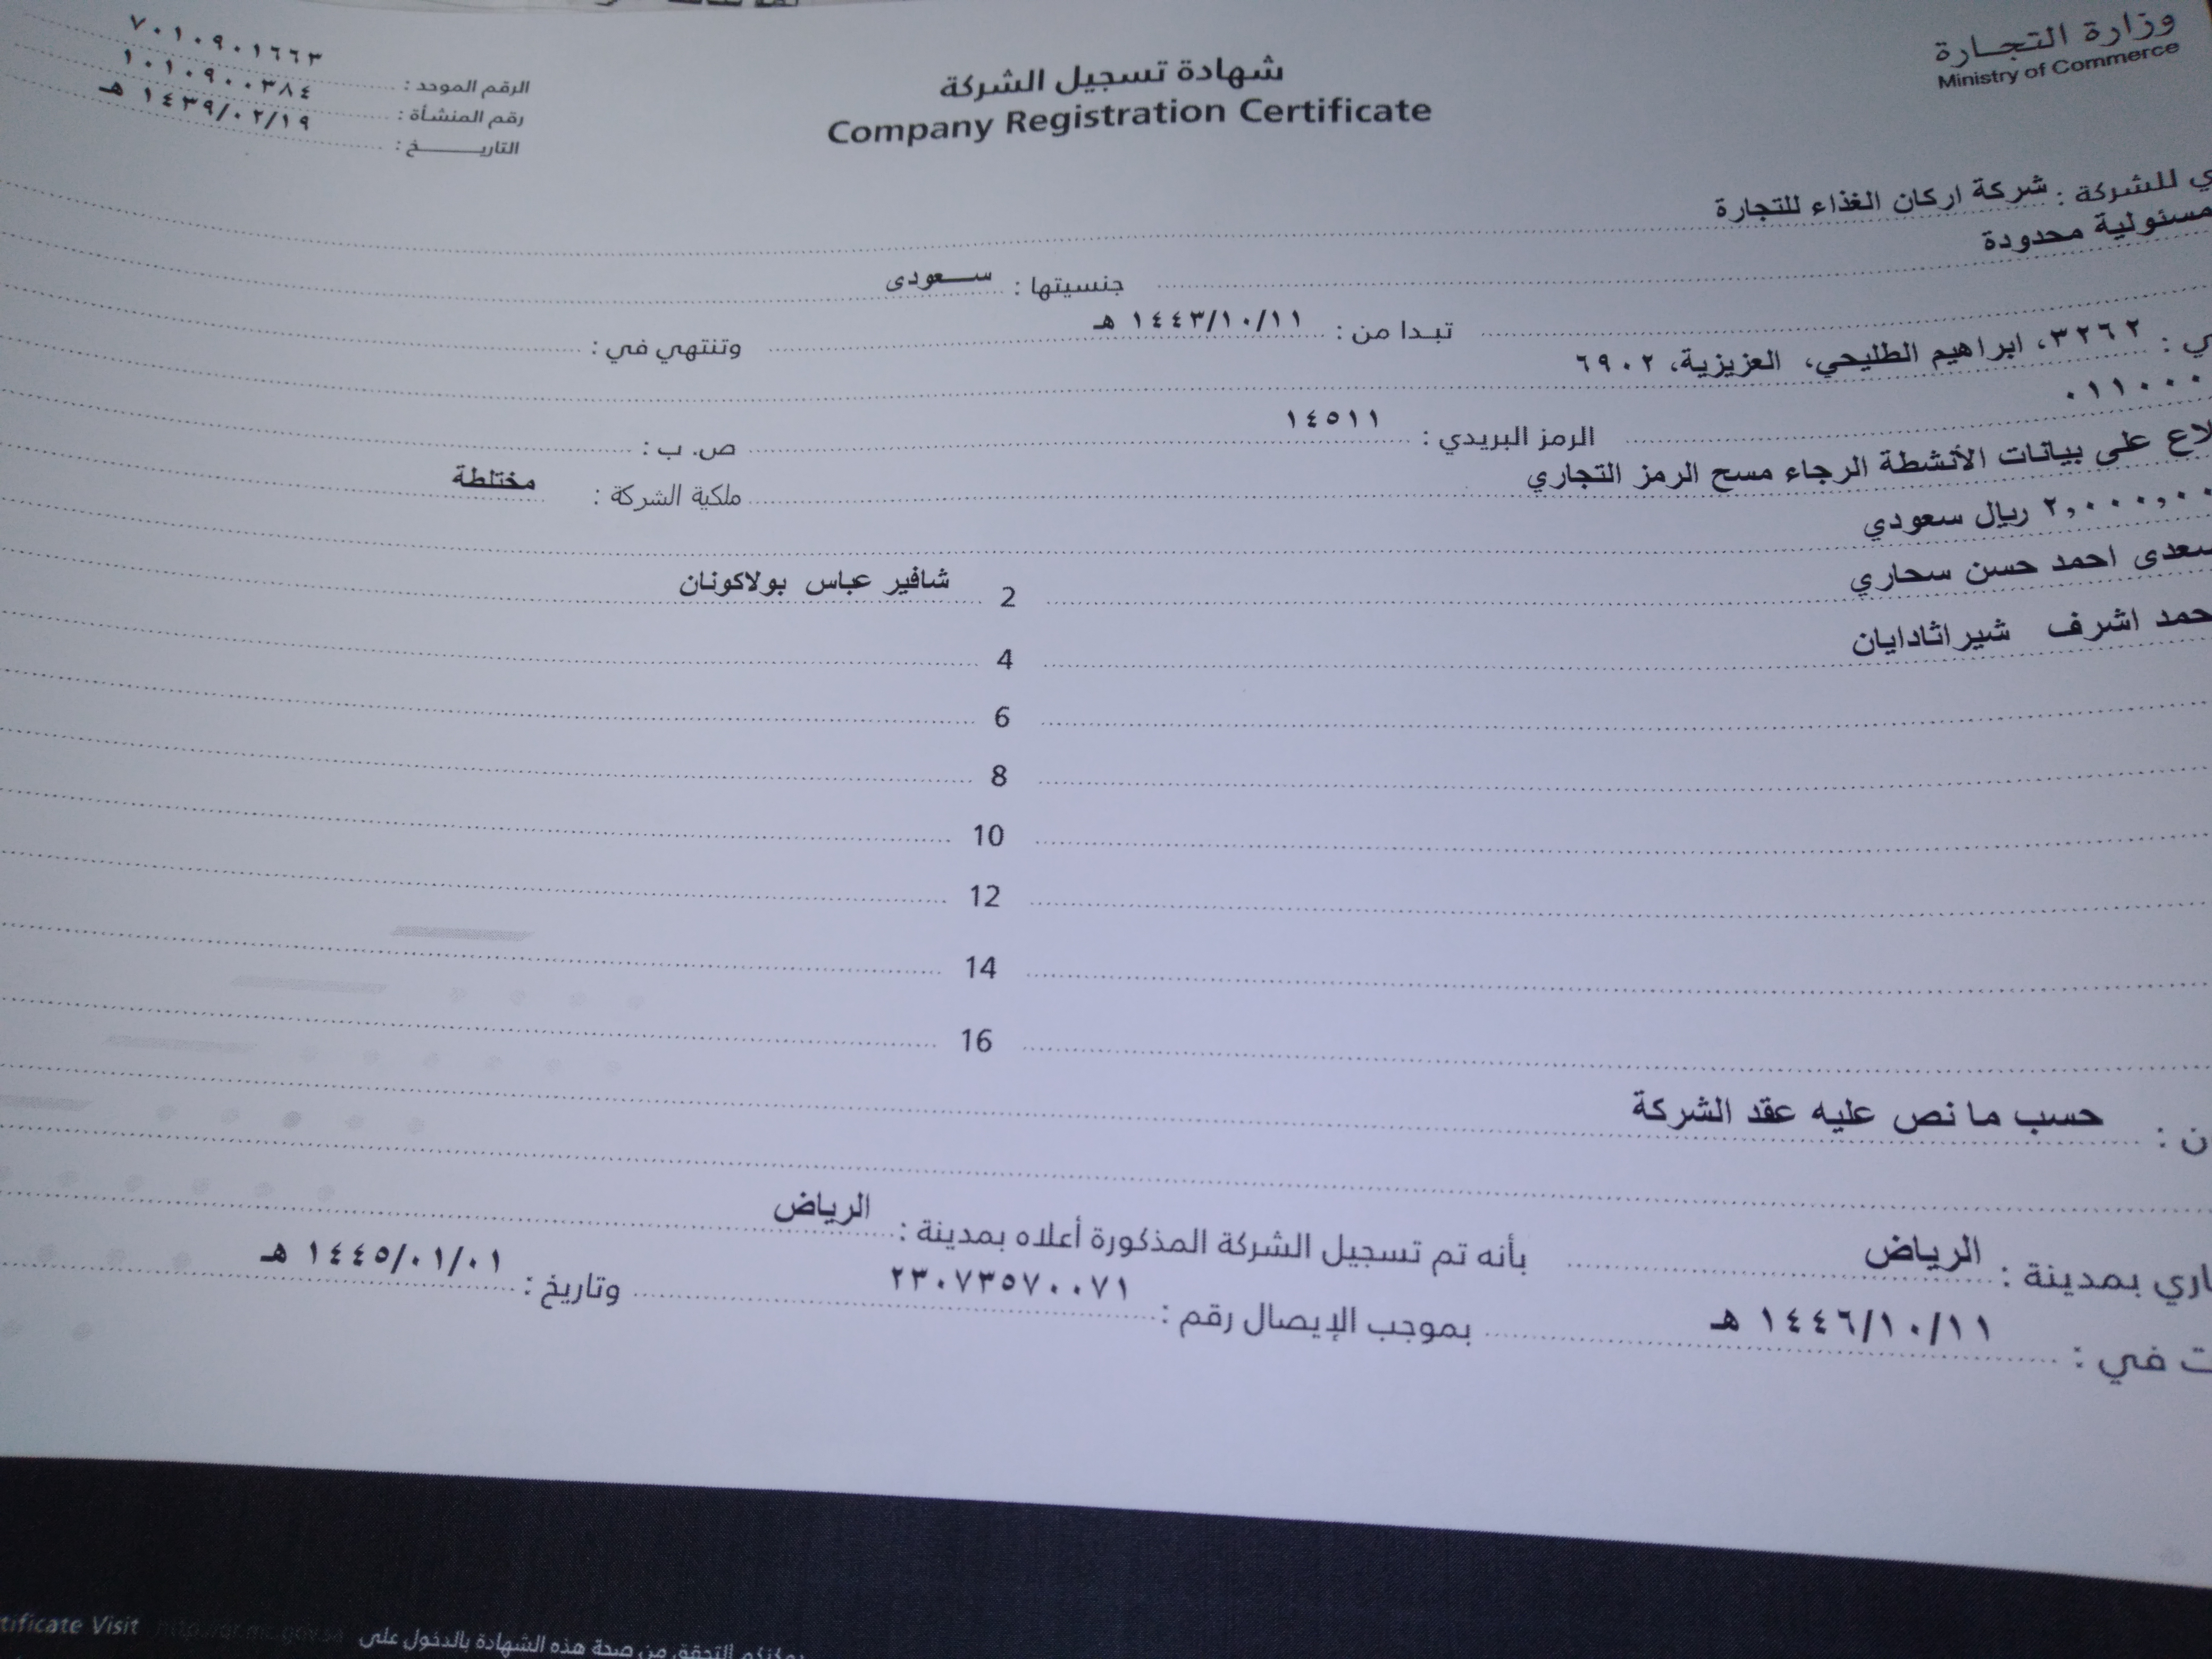 وزارة التجارة
Ministry of Commerce
شهادة تسجيل الشركة
Company Registration Certificate
الرقم الموحد : ٧٠١٠٩٠١٦٦٣
رقم المنشأة : ١٠١٠٩٠٠٣٨٤
التاريـــــخ : ١٤٣٩/٠٢/١٩ هـ
للشركة : شركة اركان الغذاء للتجارة
مسئولية محدودة جنسيتها : ســعودى
تبـدا من : ١٤٤٣/١٠/١١ هـ وتنتهي في :
٣٢٦٢، ابراهيم الطليحي، العزيزية، ٦٩٠٢
٠١١٠٠٠ الرمز البريدي : ١٤٥١١ ص. ب :
على بيانات الأنشطة الرجاء مسح الرمز التجاري ملكية الشركة : مختلطة
ريال سعودي
احمد حسن سحاري 2 شافير عباس بولاكونان
اشرف شيراثادايان 4
6
8
10
12
14
16
حسب ما نص عليه عقد الشركة
بمدينة : الرياض بأنه تم تسجيل الشركة المذكورة أعلاه بمدينة : الرياض
في : ١٤٤٦/١٠/١١ هـ بموجب الإيصال رقم : ٢٣٠٧٣٥٧٠٠٧١ وتاريخ : ١٤٤٥/٠١/٠١ هـ
يمكنكم التحقق من صحة هذه الشهادة بالدخول على http://qr.mc.gov.sa Visit